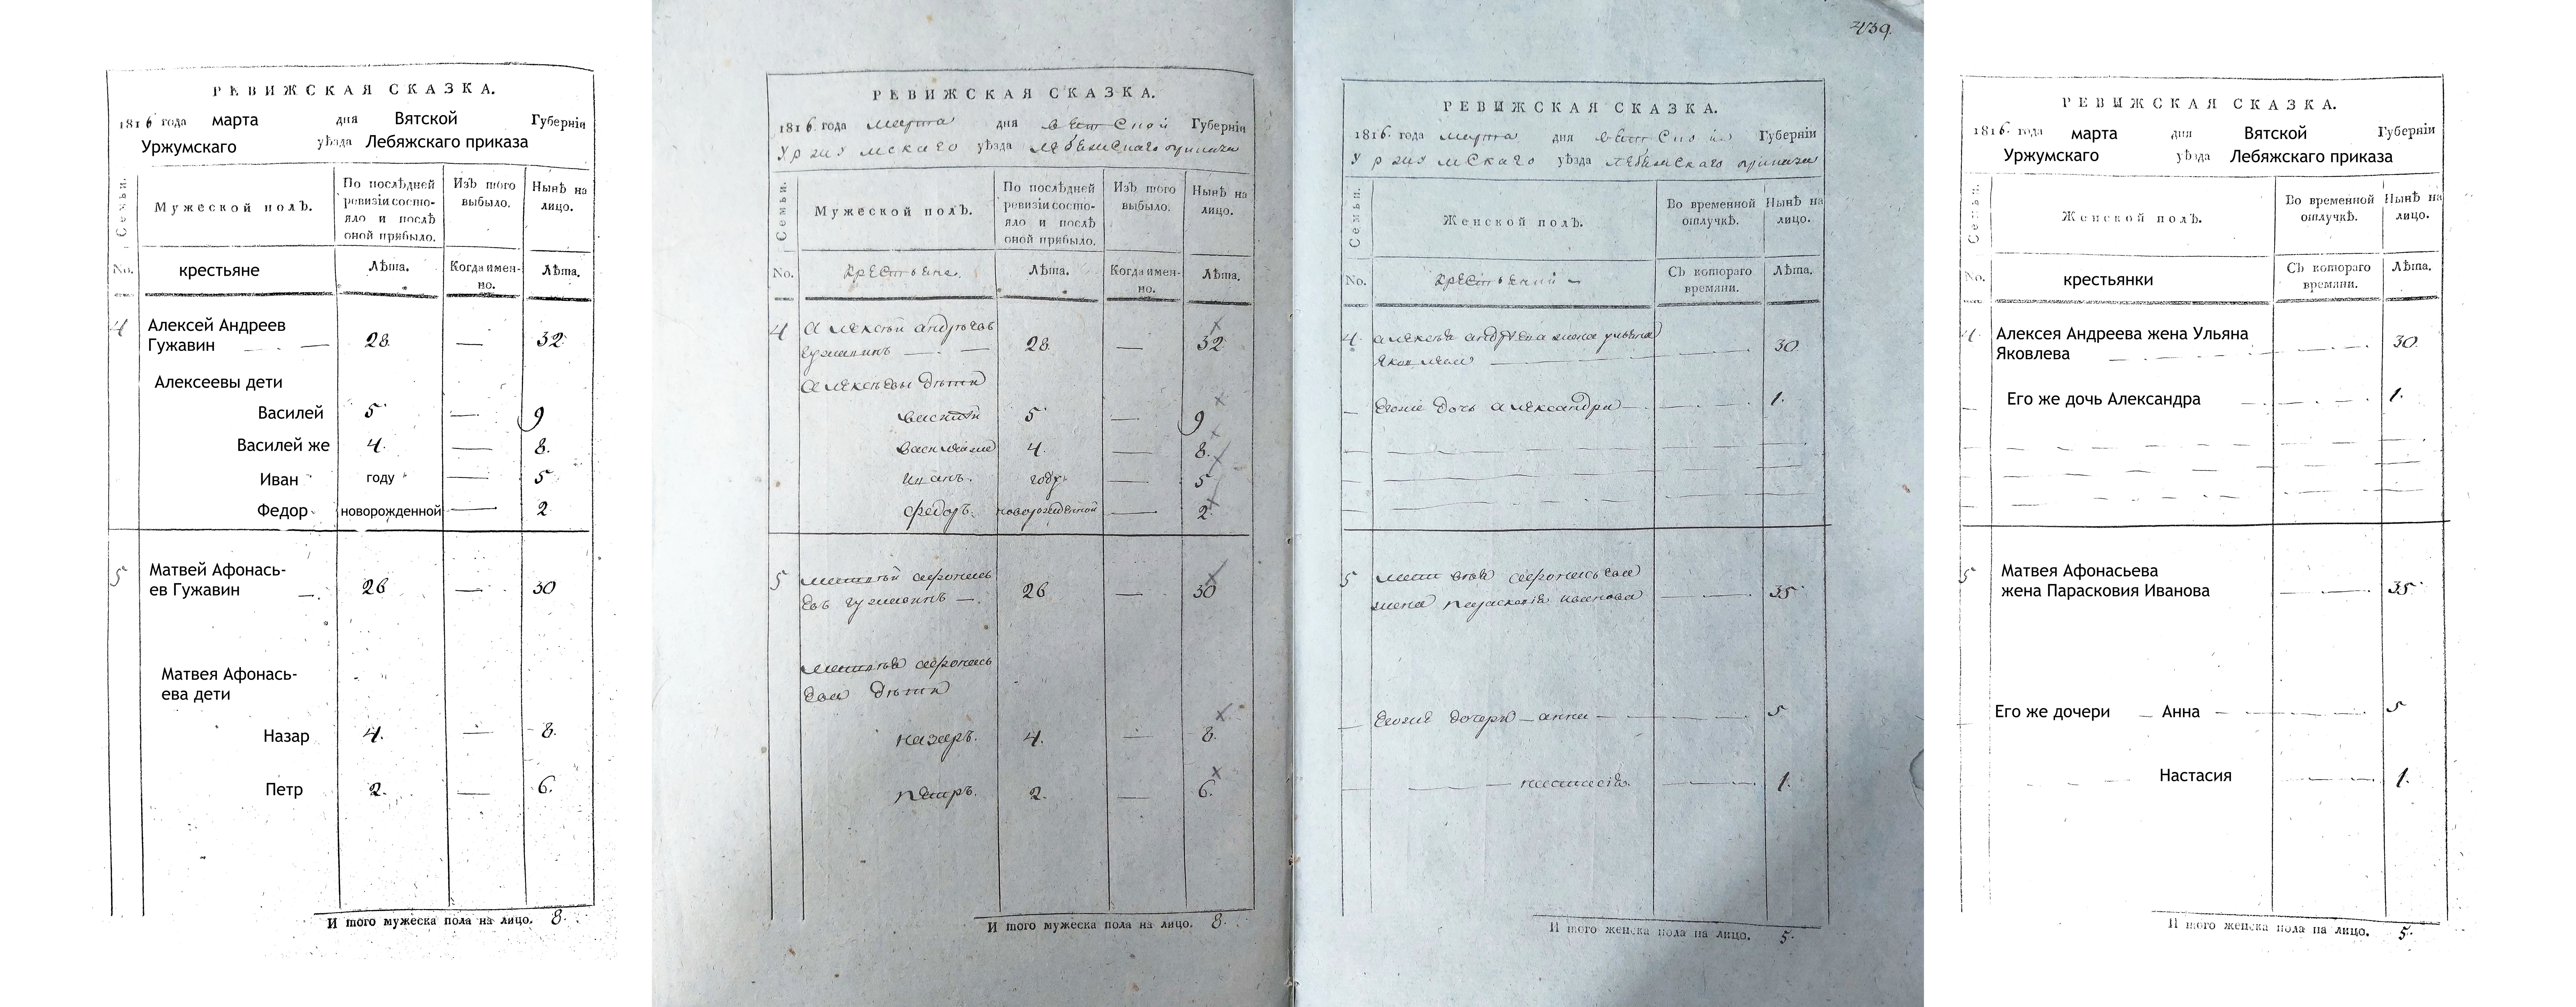 РЕВИЖСКАЯ СКАЗКА.
1816 года марта дня Вятской Губерніи
Уржумскаго уѣзда Лебяжскаго приказа
Семьи.
Мужеской полъ.
По послѣдней ревизіи состояло и послѣ оной прибыло.
Изъ того выбыло.
Нынѣ на лицо.
No. крестьяне Лѣта. Когда имен-но. Лѣта.
4 Алексей Андреев
Гужавин 28. — 32.
Алексеевы дети
Василей 5 — 9
Василей же 4. — 8.
Иван году — 5
Федор новорожденной — 2
5 Матвей Афонась-
ев Гужавин 26 — 30
Матвея Афонась-
ева дети
Назар 4. — 8.
Петр 2. — 6.
И того мужеска пола на лицо. 8.
РЕВИЖСКАЯ СКАЗКА.
1816 года марта дня Вятской Губерніи
Уржумскаго уѣзда Лебяжскаго приказа
Семьи.
Мужеской полъ.
По послѣдней ревизіи состояло и послѣ оной прибыло.
Изъ того выбыло.
Нынѣ на лицо.
No. крестьяне. Лѣта. Когда имен-но. Лѣта.
4 Алексѣй андрѣевъ
гужавинъ — 28 — 32
Алексѣевы дѣти
василѣй 5 — 9
василѣйже 4 — 8.
иванъ. году — 5
федоръ. новорожденной — 2
5 матвѣй афонась
евъ гужавинъ — 26 — 30
матвѣя афонась
ева дѣти
назаръ. 4. — 8.
петръ. 2. — 6.
И того мужеска пола на лицо. 8.
439.
РЕВИЖСКАЯ СКАЗКА.
1816. года марта дня Вятской Губерніи
Уржумскаго уѣзда лебяжскаго приказа
Семьи.
Женской полъ.
Во временной отлучкѣ.
Нынѣ на лицо.
No. крестьянки Съ котораго времяни. Лѣта.
4. алексѣя андрѣева жена ульяна
яковлева 30
Егоже дочь александра 1.
5 матвѣя афонасьева
жена парасковія иванова 35
Егоже дочери — анна — 5
настасія. 1.
И того женска пола на лицо. 5.
РЕВИЖСКАЯ СКАЗКА.
1816. года марта дня Вятской Губерніи
Уржумскаго уѣзда Лебяжскаго приказа
Семьи.
Женской полъ.
Во временной отлучкѣ.
Нынѣ на лицо.
No. крестьянки Съ котораго времяни. Лѣта.
4. Алексея Андреева жена Ульяна
Яковлева 30.
Его же дочь Александра 1.
5 Матвея Афонасьева
жена Парасковия Иванова 35
Его же дочери — Анна 5
Настасия 1.
И того женска пола на лицо. 5.